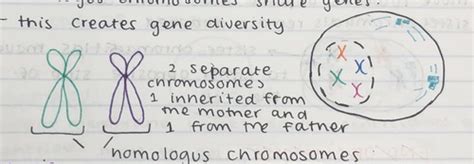 chromosomes share genes.
- this creates gene diversity
2 separate
chromosomes
1 inherited from
the mother and
1 from the father
homologus chromosomes